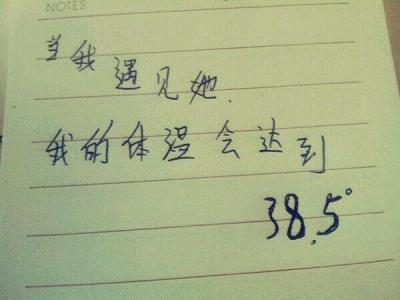 NOTES
当我遇见她.
我的体温会达到
38.5°